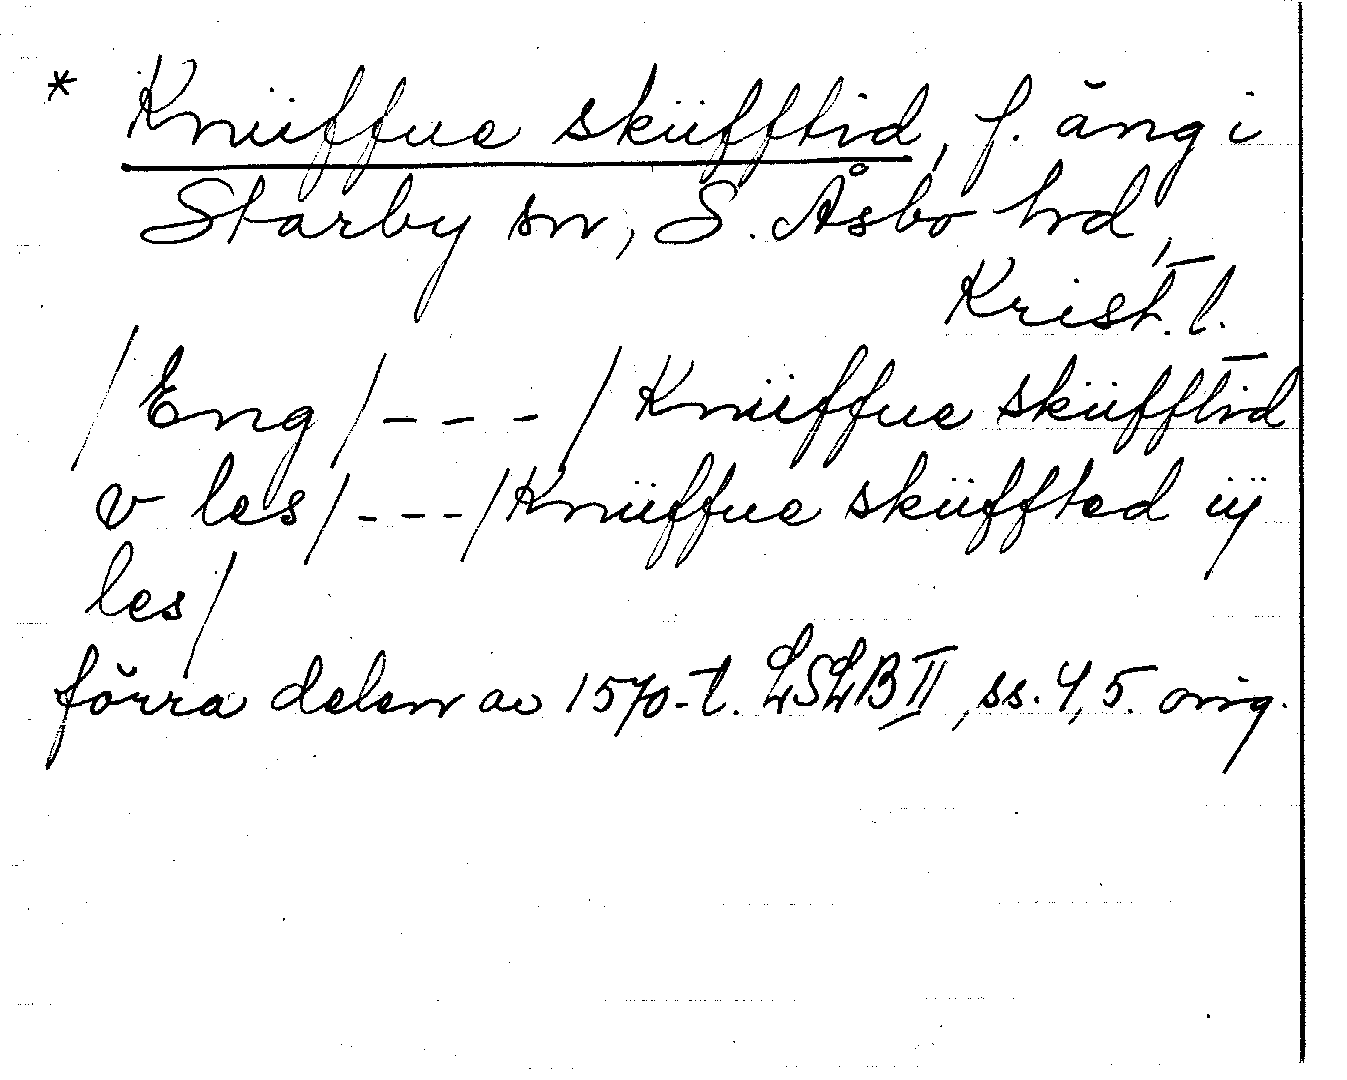 * Knüffue sküfftid, f. äng i
Starby sn, S. Åsbo hd,
Krist. l.
/Eng/---/Knüffue sküfftid
v les/---/Knüffue sküffted iij
les/
förra delen av 1570-t. LSLB II, ss. 4, 5. orig.